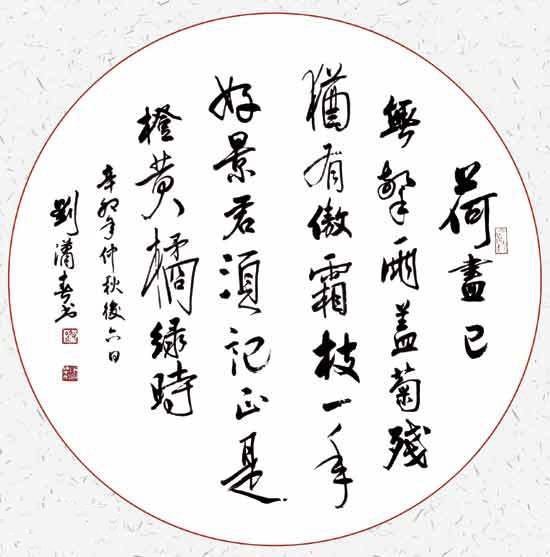 荷盡已
無擎雨盖菊殘
猶有傲霜枝一年
好景君須記正是
橙黄橘緑時
辛卯年仲秋後六日
劉